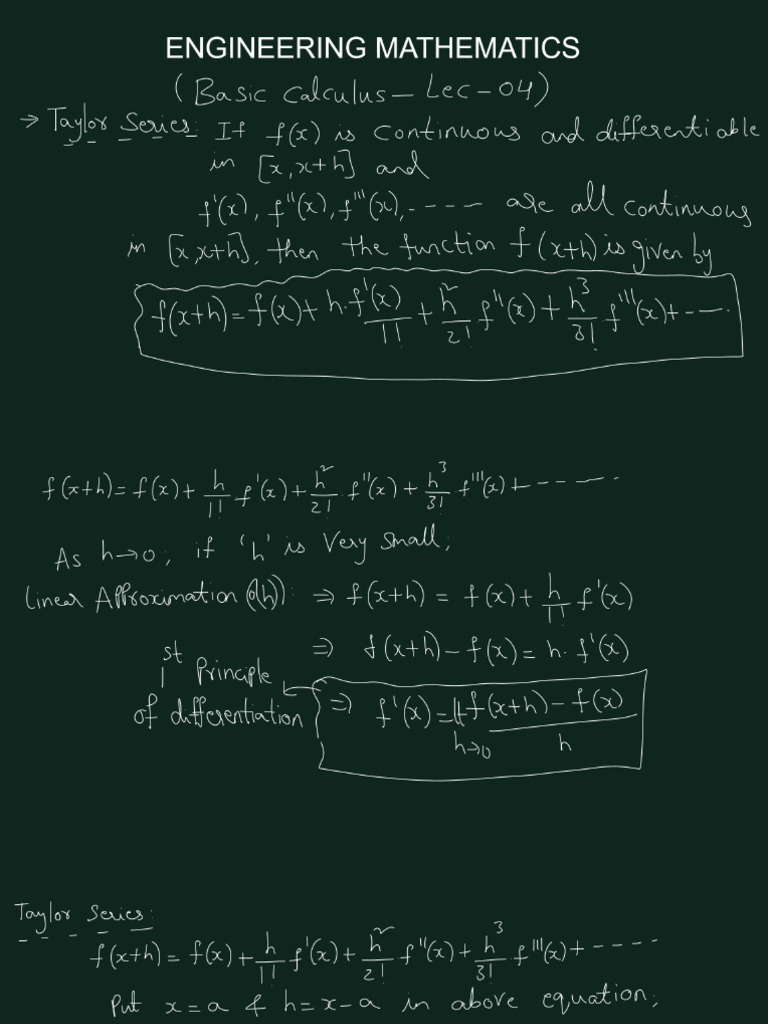 ENGINEERING MATHEMATICS
(Basic Calculus – Lec – 04)
→ Taylor Series: If f(x) is continuous and differentiable
in [x, x+h] and
f'(x), f''(x), f'''(x), ---- are all continuous
in [x, x+h], then the function f(x+h) is given by
f(x+h) = f(x) + h·f'(x)/1! + h²/2! f''(x) + h³/3! f'''(x) + ----
f(x+h) = f(x) + h/1! f'(x) + h²/2! f''(x) + h³/3! f'''(x) + ------
As h→0; if 'h' is very small;
Linear Approximation (O(h)): ⇒ f(x+h) = f(x) + h/1! f'(x)
⇒ f(x+h) − f(x) = h· f'(x)
1st Principle of differentiation ← ⇒ f'(x) = Lt h→0 (f(x+h) − f(x))/h
Taylor Series:
f(x+h) = f(x) + h/1! f'(x) + h²/2! f''(x) + h³/3! f'''(x) + ----
Put x = a & h = x−a in above equation;